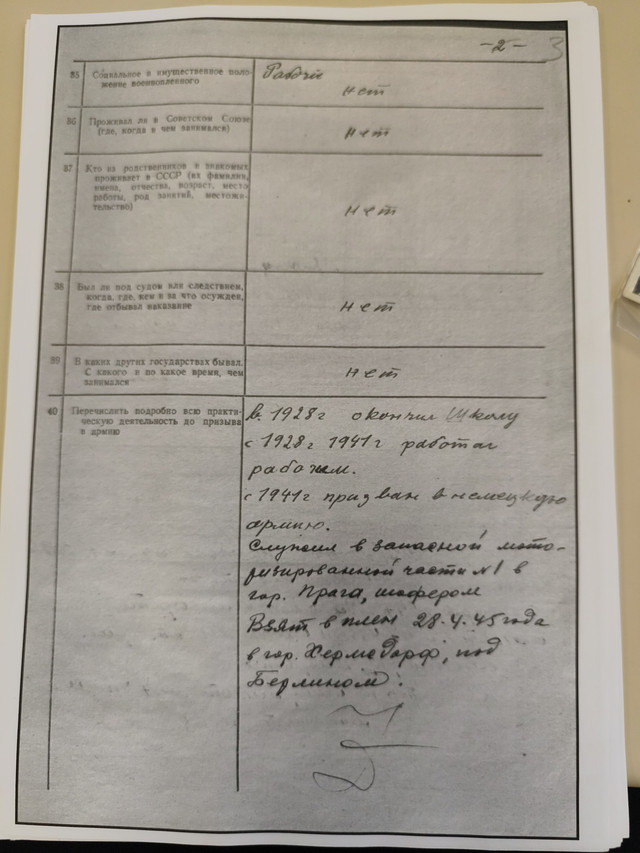 -2- 3
35 Социальное и имущественное поло-
жение военнопленного
Рабочие
нет
36 Проживал ли в Советском Союзе
(где, когда и чем занимался)
нет
37 Кто из родственников и знакомых
проживает в СССР (их фамилии,
имена, отчества, возраст, место
работы, род занятий, местожи-
тельство)
нет
38 Был ли под судом или следствием,
когда, где, кем и за что осужден,
где отбывал наказание
нет
39 В каких других государствах бывал.
С какого и по какое время, чем
занимался
нет
40 Перечислить подробно всю практи-
ческую деятельность до призыва
в армию
в. 1928г окончил Школу
с 1928г 1941г работал
рабочим.
с 1941г призван в немецкую
армию.
Служил в запасной мото-
ризированной части N1 в
гор. Прага, шофером
Взят в плен 28.4.45 года
в гор. Хермсдорф, под
Берлином.